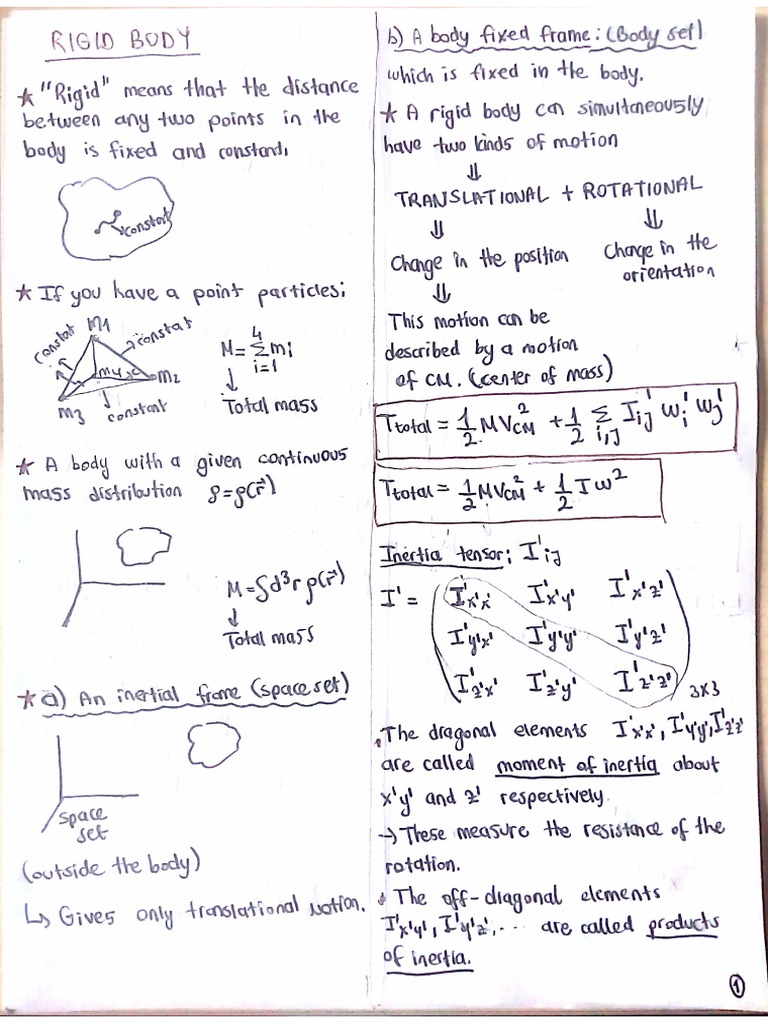 RIGID BODY
* "Rigid" means that the distance
between any two points in the
body is fixed and constant.
constant
* If you have a point particles:
m1
constat
constat
m4
m2
m3
constant
M = 4∑i=1 mi
Total mass
* A body with a given continuous
mass distribution ρ=ρ(r⃗)
M = ∫d³r ρ(r⃗)
Total mass
* a) An inertial frame (space set)
space
set
(outside the body)
↳ Gives only translational motion.
b) A body fixed frame: (Body set)
which is fixed in the body.
* A rigid body can simultaneously
have two kinds of motion
⇓
TRANSLATIONAL + ROTATIONAL
⇓ ⇓
Change in the position Change in the
orientation
⇓
This motion can be
described by a motion
of CM. (center of mass)
Ttotal = 1/2 MVCM² + 1/2 ∑i,j I'ij w'i w'j
Ttotal = 1/2 MVCM² + 1/2 I w²
Inertia tensor: I'ij
I' = ( I'x'x' I'x'y' I'x'z'
I'y'x' I'y'y' I'y'z'
I'z'x' I'z'y' I'z'z' ) 3x3
• The diagonal elements I'x'x', I'y'y', I'z'z'
are called moment of inertia about
x'y' and z' respectively.
→ These measure the resistance of the
rotation.
• The off-diagonal elements
I'x'y', I'y'z', ... are called products
of inertia.
1